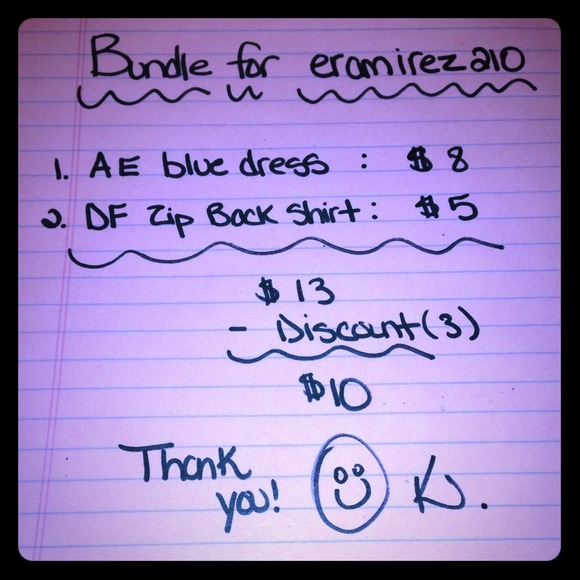 Bundle for eramirez210
1. AE blue dress : $8
2. DF Zip Back Shirt : $5
$13
- Discount (3)
$10
Thank
you! K.